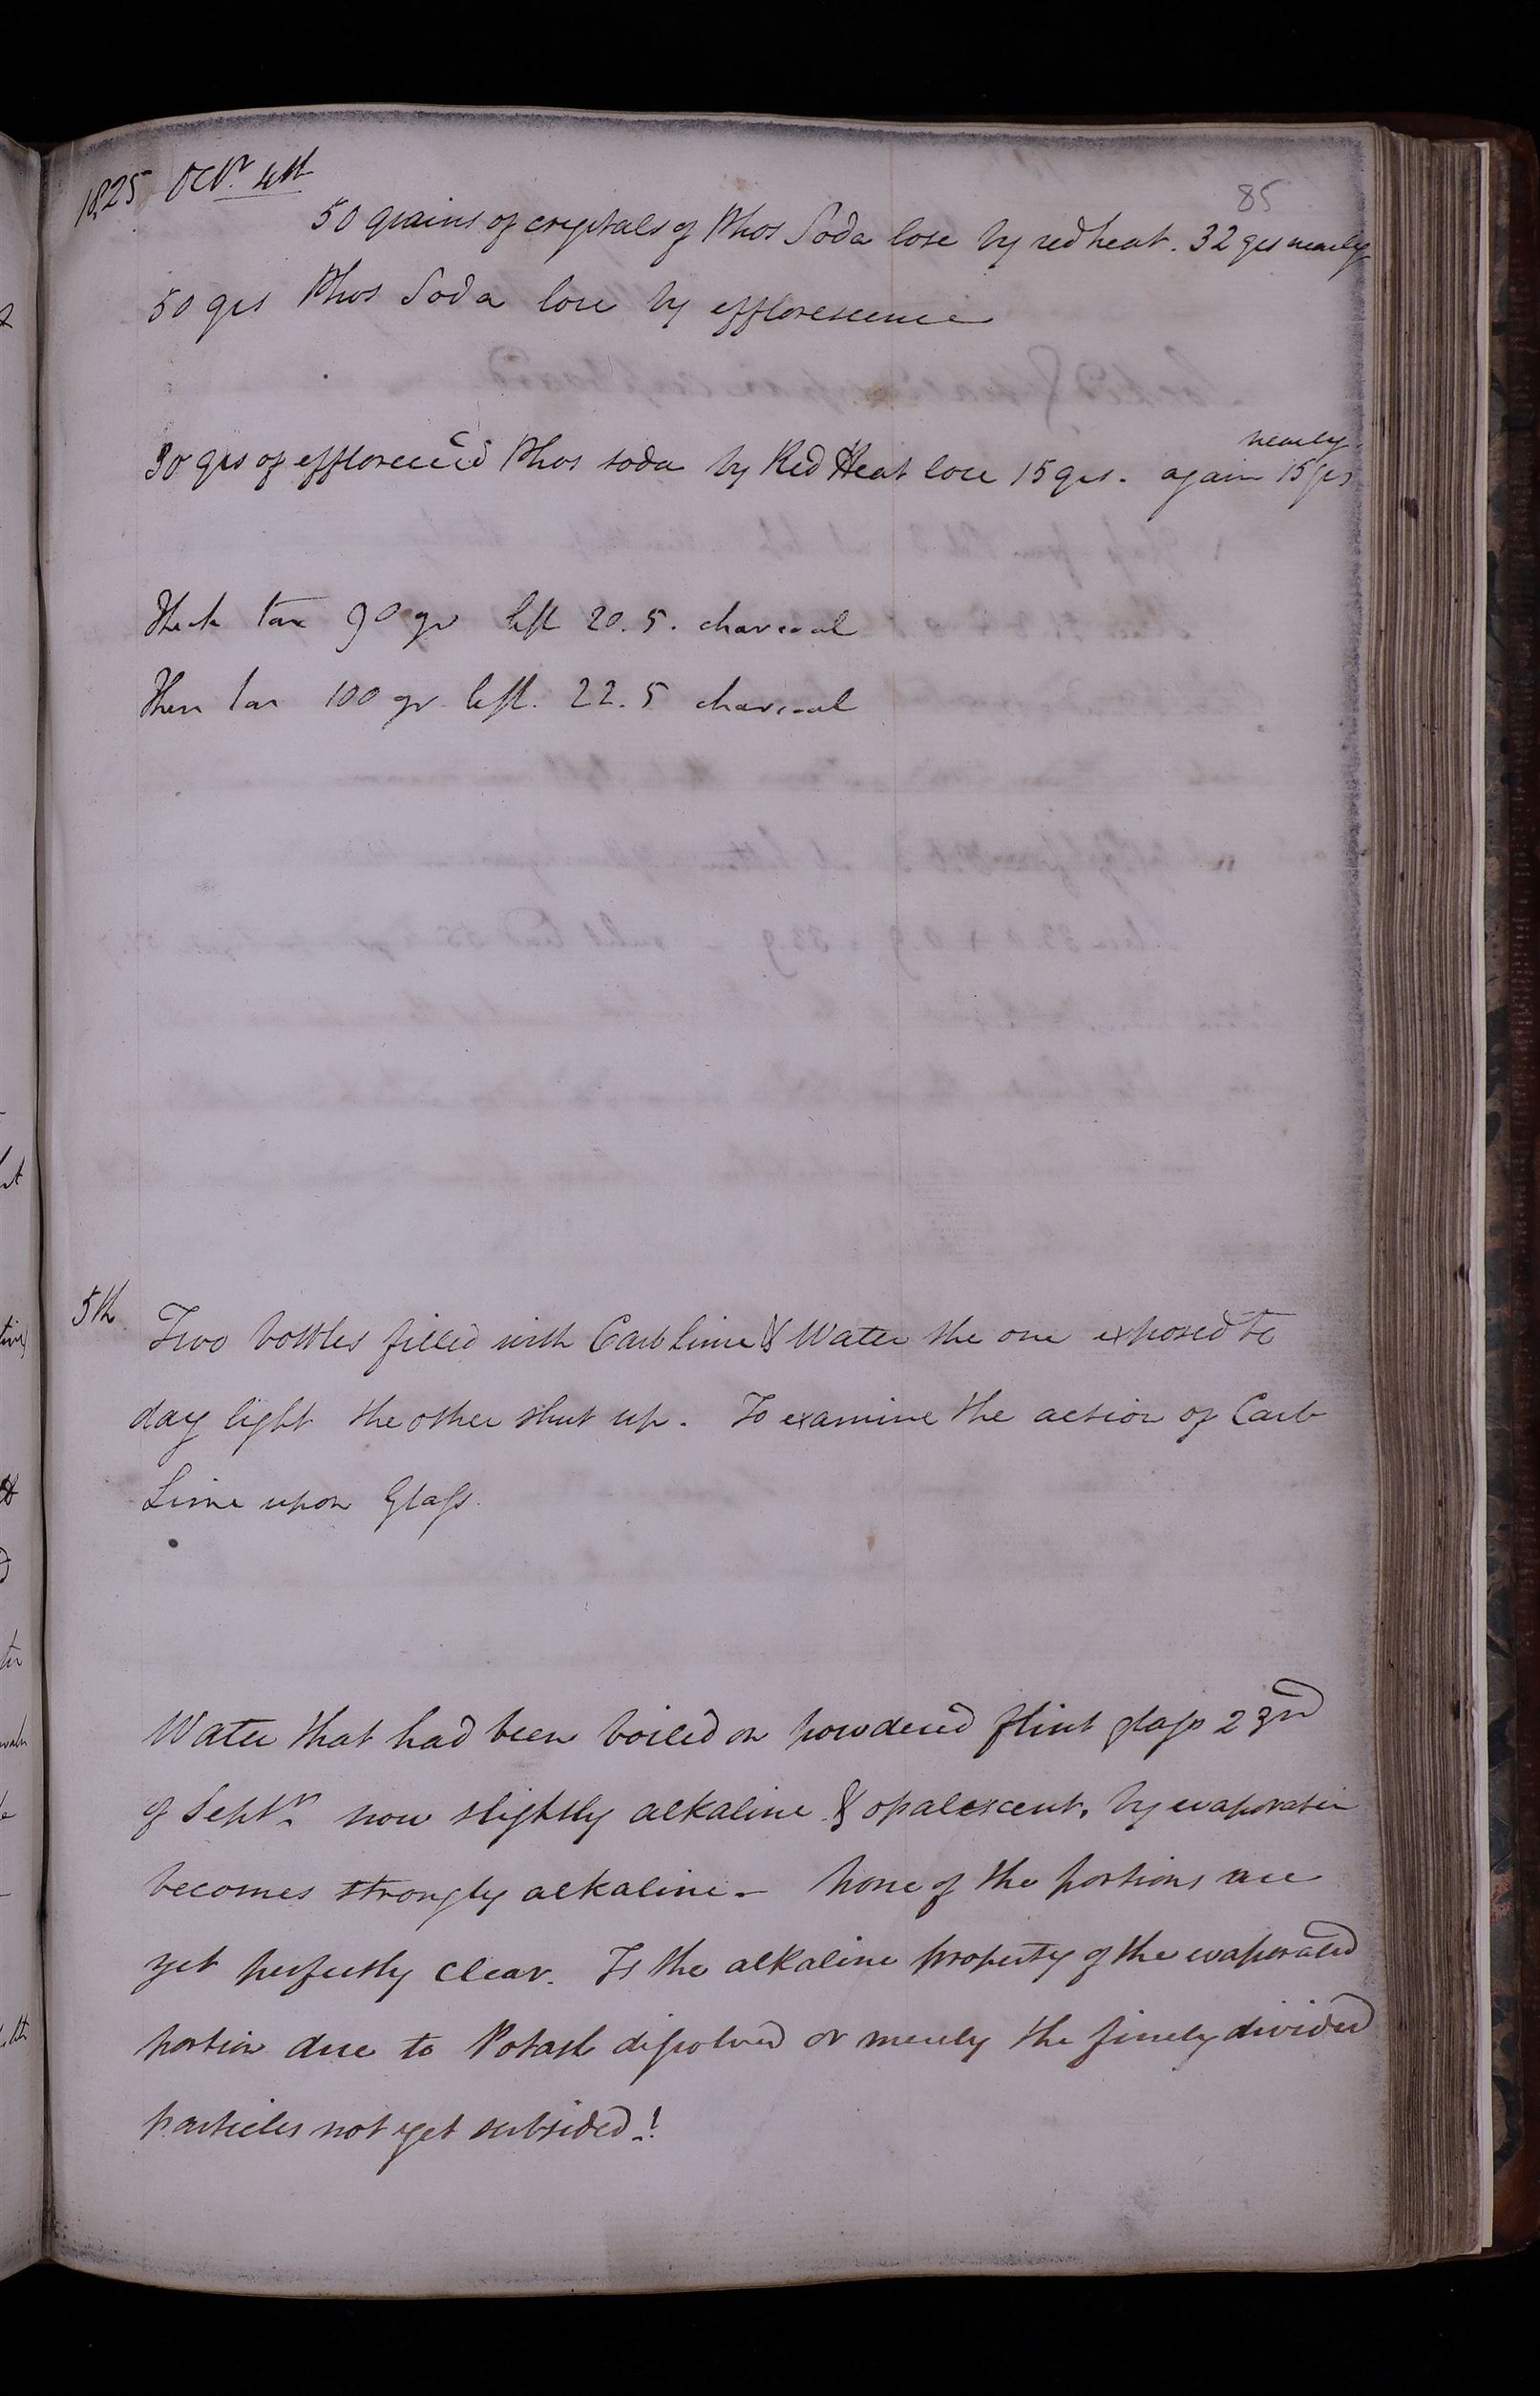 85
1825 Octr. 4th
50 grains of crystals of Phos Soda lose by red heat. 32 grs nearly
50 grs Phos Soda lose by efflorescence
nearly
30 grs of effloresced Phos soda by Red Heat lose 15 grs. again 15 grs
Thick tar 90 gr left 20.5. charcoal
Then tar 100 gr left. 22.5 charcoal
5th
Two bottles filled with Carb Lime & Water the one exposed to
day light the other shut up. To examine the action of Carb
Lime upon Glass.
Water that had been boiled on powdered flint glass 23rd
of Septr. now slightly alkaline & opalescent, by evaporation
becomes strongly alkaline - None of the portions are
yet perfectly clear. Is the alkaline property of the evaporated
portion due to Potash dissolved or merely the finely divided
particles not yet subsided!